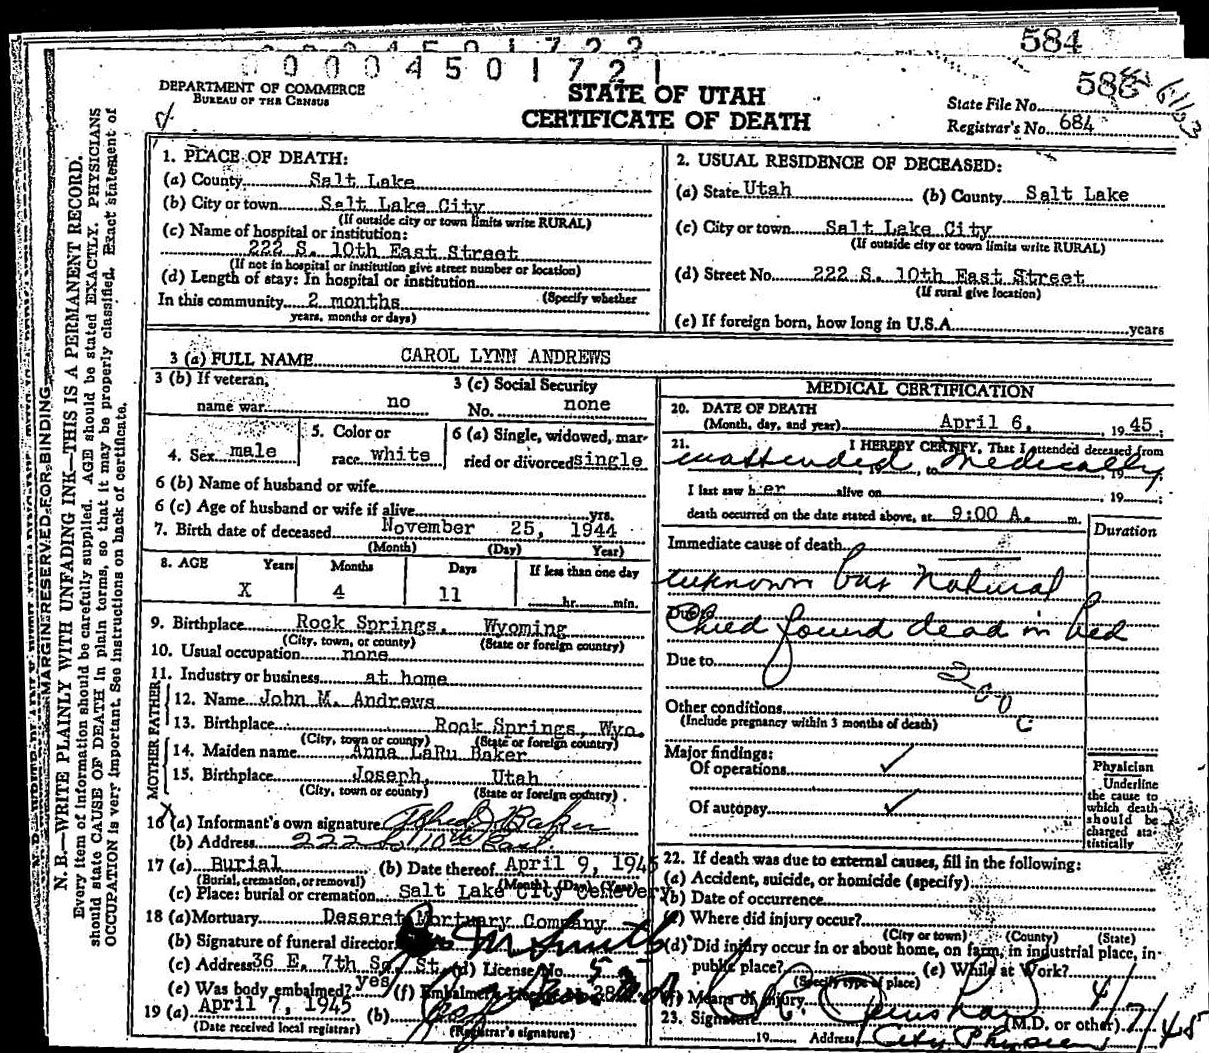 584
0000450172
588
DEPARTMENT OF COMMERCE
BUREAU OF THE CENSUS
STATE OF UTAH
CERTIFICATE OF DEATH
State File No.
Registrar's No. 684
MARGIN RESERVED FOR BINDING
N. B.—WRITE PLAINLY WITH UNFADING INK—THIS IS A PERMANENT RECORD.
Every item of information should be carefully supplied. AGE should be stated EXACTLY. PHYSICIANS
should state CAUSE OF DEATH in plain terms, so that it may be properly classified. Exact statement of
OCCUPATION is very important. See instructions on back of certificate.
1. PLACE OF DEATH:
(a) County Salt Lake
(b) City or town Salt Lake City
(If outside city or town limits write RURAL)
(c) Name of hospital or institution:
222 S. 10th East Street
(If not in hospital or institution give street number or location)
(d) Length of stay: In hospital or institution
(Specify whether
In this community 2 months
years, months or days)
2. USUAL RESIDENCE OF DECEASED:
(a) State Utah (b) County Salt Lake
(c) City or town Salt Lake City
(If outside city or town limits write RURAL)
(d) Street No. 222 S. 10th East Street
(If rural give location)
(e) If foreign born, how long in U.S.A. years
3 (a) FULL NAME CAROL LYNN ANDREWS
3 (b) If veteran, name war no
3 (c) Social Security No. none
4. Sex male
5. Color or race white
6 (a) Single, widowed, married or divorced single
6 (b) Name of husband or wife
6 (c) Age of husband or wife if alive yrs.
7. Birth date of deceased November 25, 1944
(Month) (Day) Year)
8. AGE Years Months Days If less than one day
X 4 11 hr. min.
9. Birthplace Rock Springs, Wyoming
(City, town, or county) (State or foreign country)
10. Usual occupation none
11. Industry or business at home
FATHER
12. Name John M. Andrews
13. Birthplace Rock Springs, Wyo.
(City, town or county) (State or foreign country)
MOTHER
14. Maiden name Anna LaRu Baker
15. Birthplace Joseph, Utah
(City, town or county) (State or foreign country)
16 (a) Informant's own signature Baker
(b) Address 222 So 10th East
17 (a) Burial (b) Date thereof April 9, 1945
(Burial, cremation, or removal) (Month) (Day) (Year)
(c) Place: burial or cremation Salt Lake City Cemetery
18 (a) Mortuary Deseret Mortuary Company
(b) Signature of funeral director M Smith
(c) Address 36 E. 7th So. St. (d) License No. 5
(e) Was body embalmed? yes (f) Embalmer's License No.
19 (a) April 7, 1945 (b)
(Date received local registrar) (Registrar's signature)
MEDICAL CERTIFICATION
20. DATE OF DEATH
(Month, day, and year) April 6, 1945
21. I HEREBY CERTIFY, That I attended deceased from
unattended, 19 to medically, 19
I last saw her alive on , 19
death occurred on the date stated above, at 9:00 A. m.
Duration
Immediate cause of death
unknown but natural
Due to
Child found dead in bed
Due to
200 c
Other conditions
(Include pregnancy within 3 months of death)
Major findings:
Of operations ✓
Of autopsy ✓
Physician
Underline
the cause to
which death
should be
charged sta-
tistically
22. If death was due to external causes, fill in the following:
(a) Accident, suicide, or homicide (specify)
(b) Date of occurrence
(c) Where did injury occur?
(City or town) (County) (State)
(d) Did injury occur in or about home, on farm, in industrial place, in
public place? (e) While at Work?
(Specify type of place)
(f) Means of injury
23. Signature (M.D. or other) 4/7/45
19 Address City Physician